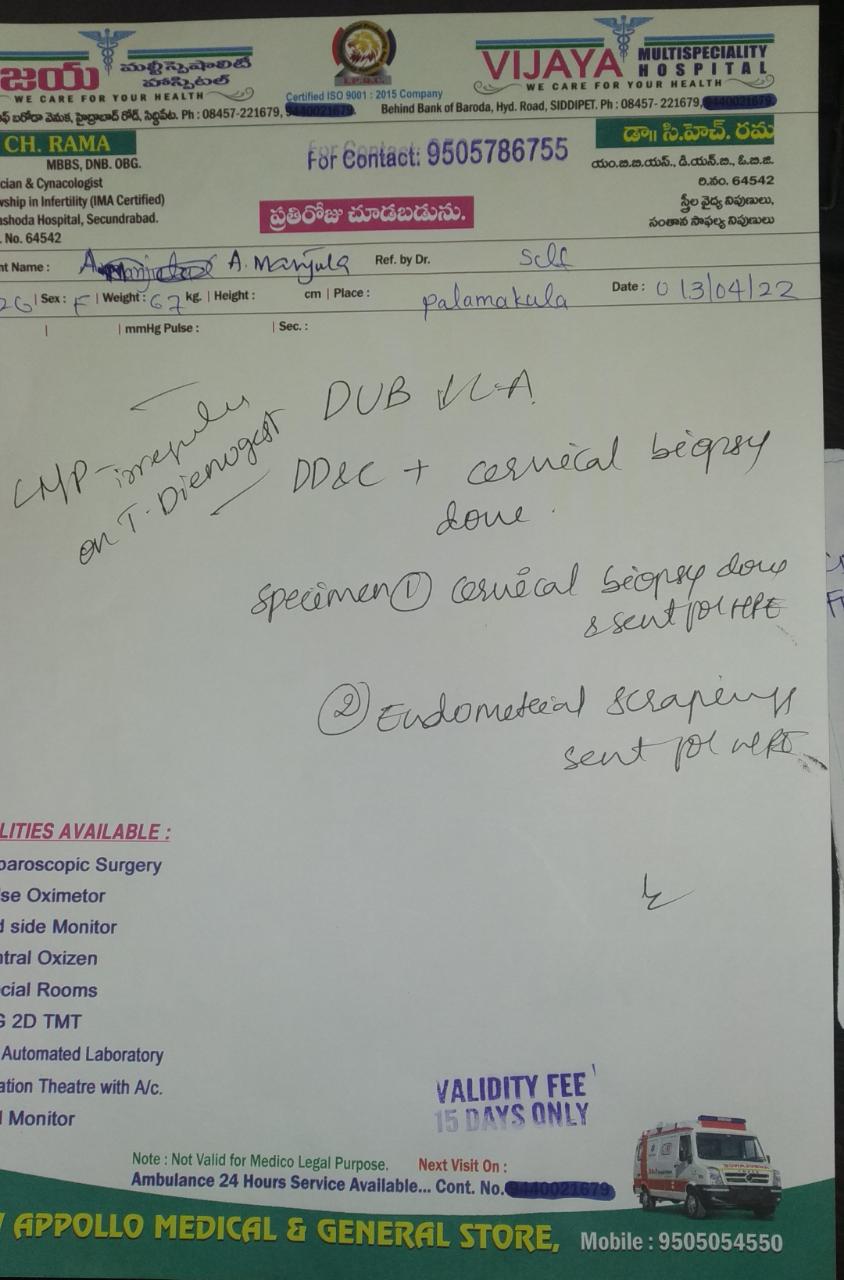 జయ మల్టీస్పెషాలిటీ హాస్పిటల్
WE CARE FOR YOUR HEALTH
Certified ISO 9001 : 2015 Company
VIJAYA MULTISPECIALITY HOSPITAL
WE CARE FOR YOUR HEALTH
ఫ్ బరోడా వెనుక, హైద్రాబాద్ రోడ్, సిద్దిపేట. Ph : 08457-221679,
Behind Bank of Baroda, Hyd. Road, SIDDIPET. Ph : 08457- 221679,
CH. RAMA
MBBS, DNB. OBG.
cian & Cynacologist
wship in Infertility (IMA Certified)
ashoda Hospital, Secundrabad.
. No. 64542
For Contact: 9505786755
ప్రతిరోజు చూడబడును.
డా॥ సి.హెచ్. రమ
యం.బి.బి.యస్., డి.యన్.బి., ఓ.బి.జి.
రి.నం. 64542
స్త్రీల వైద్య నిపుణులు,
సంతాన సాఫల్య నిపుణులు
nt Name : A. Manjula Ref. by Dr. Self
26 | Sex : F | Weight : 67 kg. | Height : cm | Place : Palamakula Date : 013/04/22
| mmHg Pulse : | Sec. :
LMP - irregular
on T. Dienogest
DUB
DD&C + cervical biopsy
done.
Specimen ① cervical biopsy done
& sent for HPE
② Endometrial scrapings
sent for HPE
LITIES AVAILABLE :
paroscopic Surgery
lse Oximetor
d side Monitor
ntral Oxizen
cial Rooms
G 2D TMT
Automated Laboratory
ation Theatre with A/c.
l Monitor
VALIDITY FEE
15 DAYS ONLY
Note : Not Valid for Medico Legal Purpose. Next Visit On :
Ambulance 24 Hours Service Available... Cont. No. 9440021679
APPOLLO MEDICAL & GENERAL STORE, Mobile : 9505054550